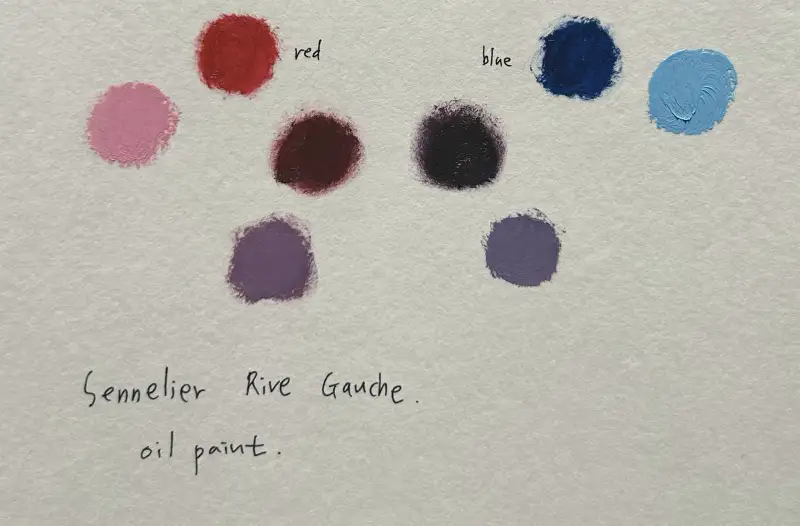 red
blue
Sennelier Rive Gauche.
oil paint.